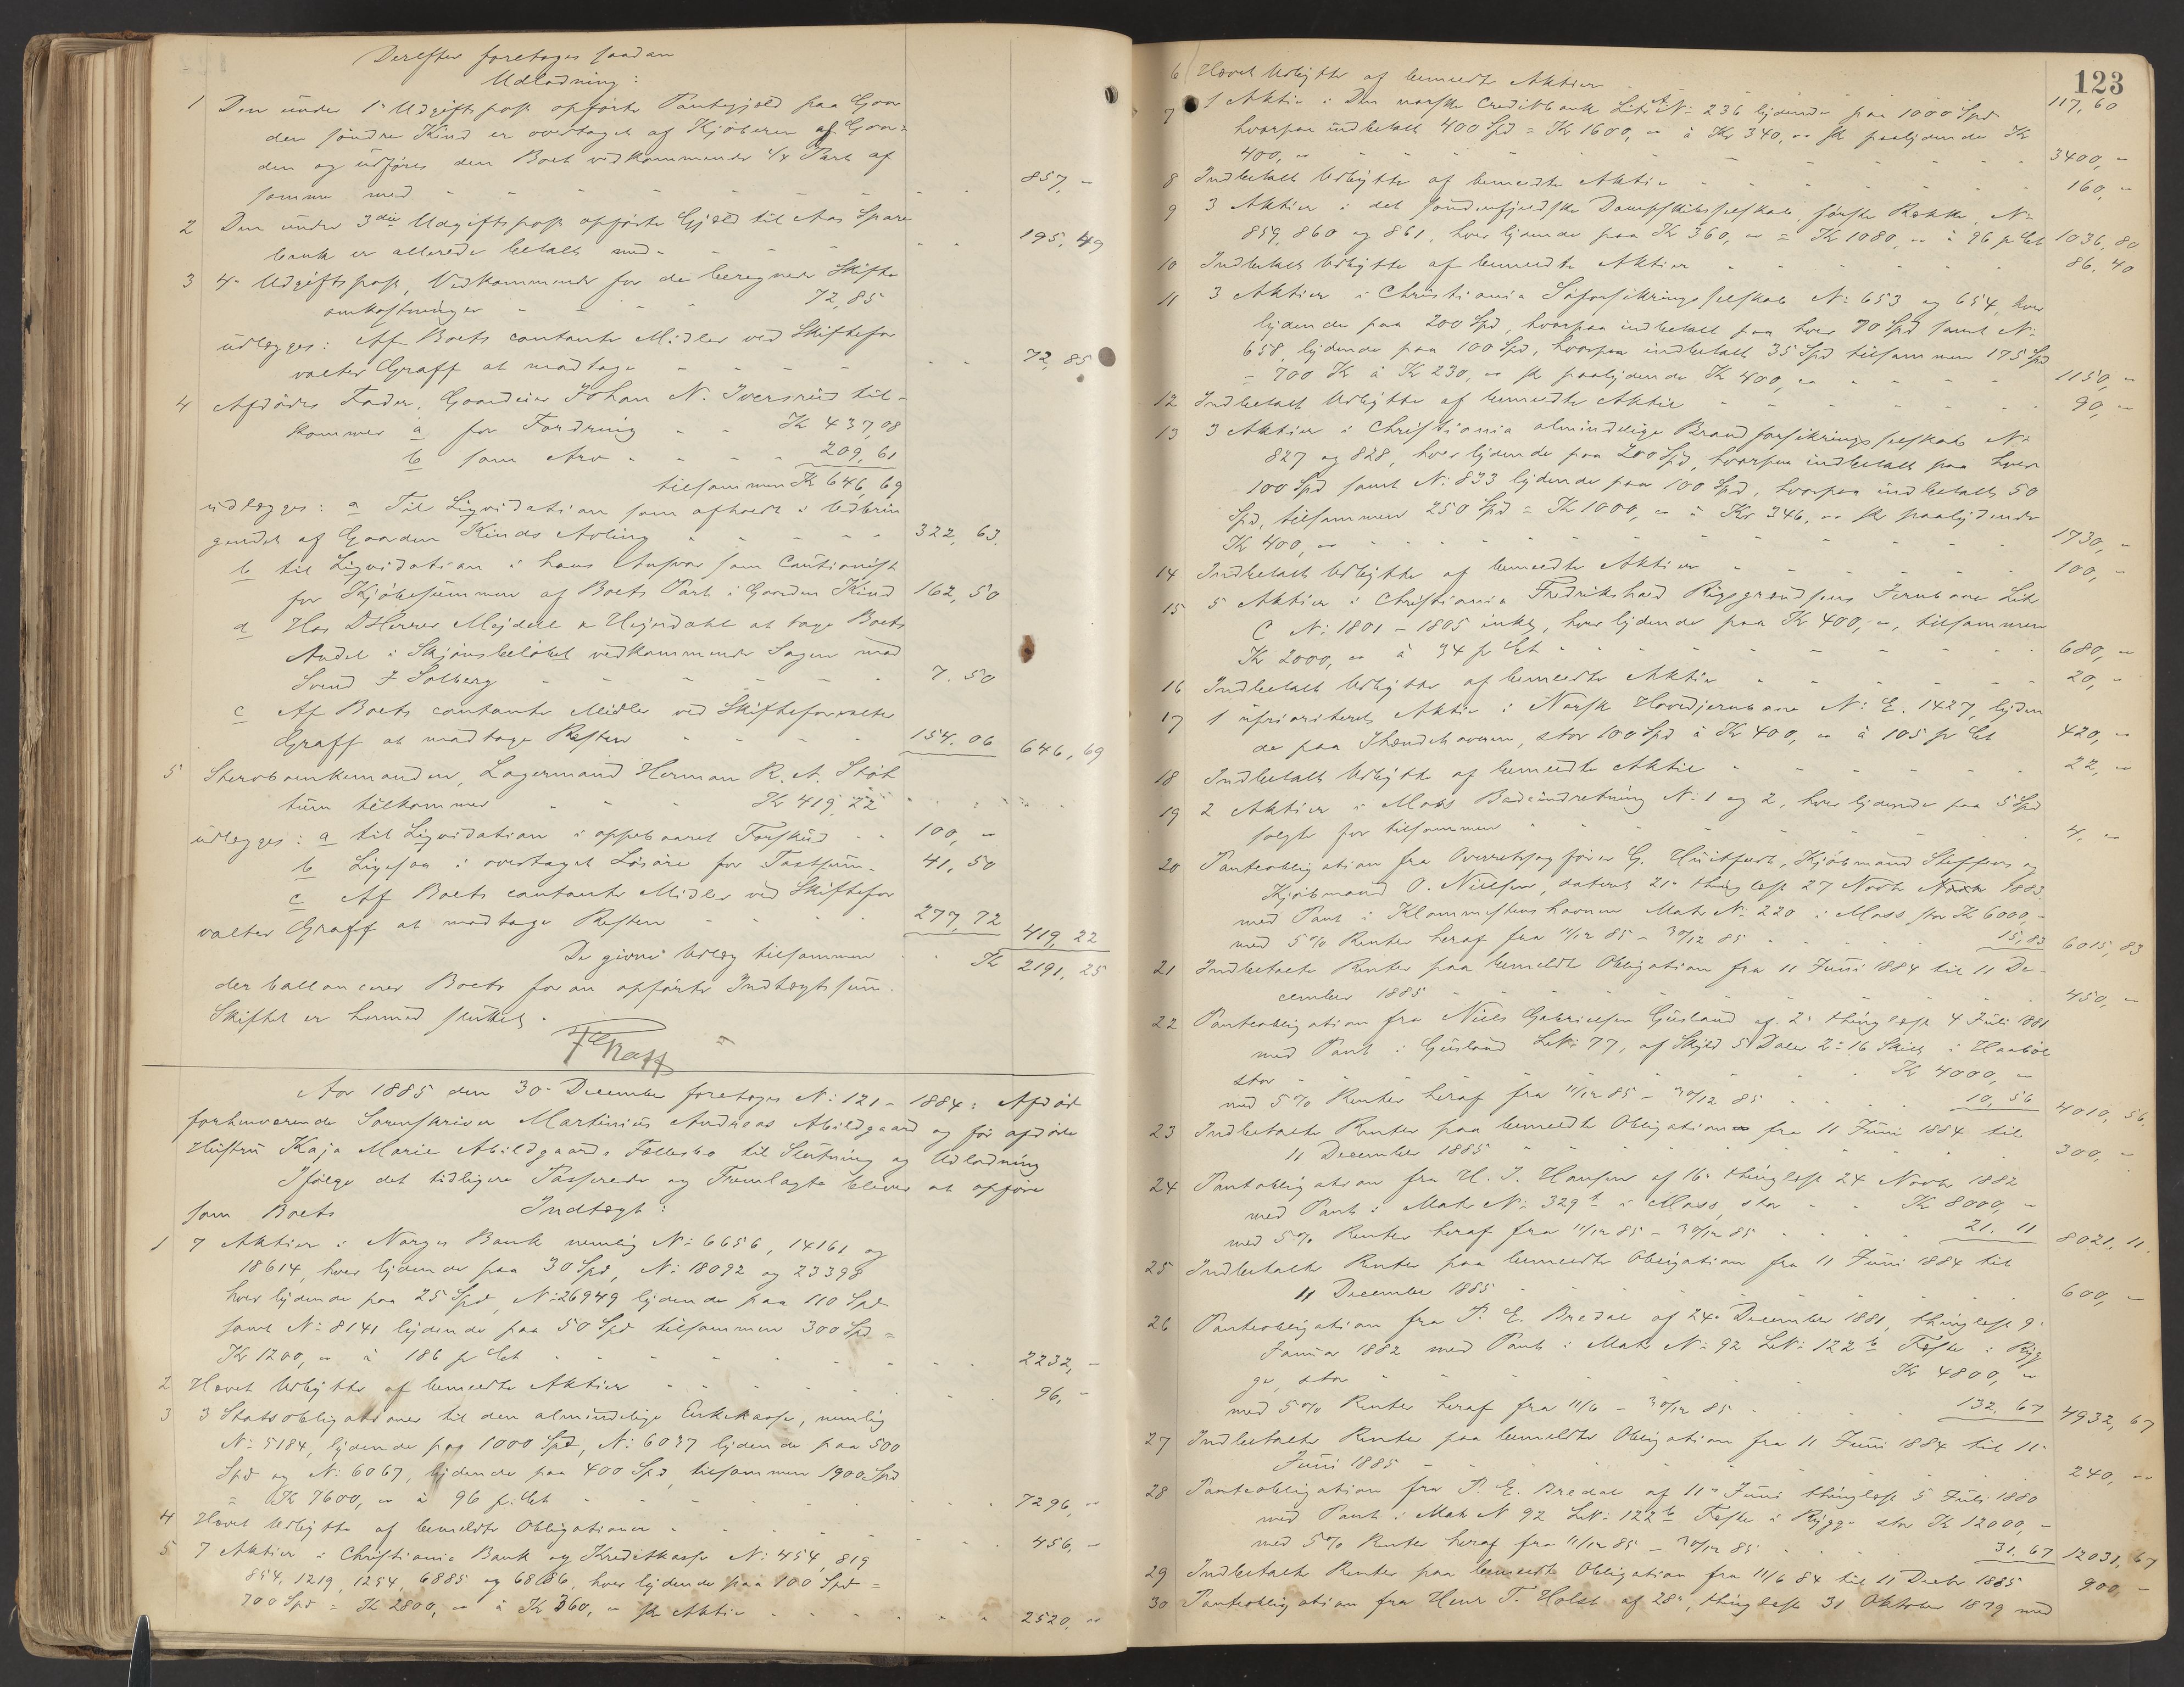 Derefter foretages saadan
Udlodning:
1 Den under 1ste Udgiftspost opførte Pantegjæld paa Gaar
den søndre Kind er overtaget af Kjøberen af Gaar=
den og udføres den Boet vedkommende 1/4 Part af
samme med - - - - - - - 857, "
2 Den under 3die Udgiftspost opførte Gjæld til Aas Spare
bank er allerede betalt med - - - 195, 49
3 4de Udgiftspost, Vedkommende for de beregnede Skifte
omkostninger - - - - 72,85
udlægges: Af Boets contante Midler ved Skiftefor
valter Graff at modtage - - - - - 72,85
4 Afdødes Fader, Gaardeier Johan N. Iversrud til-
kommer a for Fordring - - Kr 437,08
b som Arv - - - - 209,61
tilsammen Kr 646,69
udlægges: a Til Liqvidation som afholdt i Udbrin
gendet af Gaarden Kinds Avling - - - - - 322, 63.
b til Liqvidation i hans Ansvar som Cautionist
for Kjøbesummen af Boets Part i Gaarden Kind 162,50
d Hos DHerrer Mejdell & Hejrdahl at tage Boets
Andel i Skjønsbeløbet vedkommende Sagen mod
Svend J Solberg - - - - - - - 7.50
c Af Boets contante Midler ved Skifteforvalter
Graff at modtage Resten - - - - 154.06 646,69
5 Stervboenkemanden, Lagermand Herman R. A. Støt
tum tilkommer - - - Kr 419,22
udlægges: a til Liqvidation i oppebaaret Forskud - - 100, "
b Ligesaa i overtaget Løsøre for Taxtsum - 41,50
c Af Boets contante Midler ved Skiftefor
valter Graff at modtage Resten - - - - 277,72 419,22
De givne Udlæg tilsammen - - Kr 2191,25
der ballancerer Boets foran opførte Indtægtssum.
Skiftet er hermed sluttet.
Graff
Aar 1885 den 30te December foretoges No 121 - 1884: Afdøde
forhenværende Sorenskriver Martinius Andreas Abildgaard og før afdøde
Hustru Kaja Marie Abildgaards Fællesbo til Slutning og Udlodning
Ifølge det tidligere Passerede og Fremlagte bliver at opføre
som Boets Indtægt:
1 7 Aktier i Norges Bank nemlig No 6656, 14161 og
18614, hver lydende paa 30 Spd, No 18092 og 23398
hver lydende paa 25 Spd, No 26949 lydende paa 110 Spd
samt No 8141 lydende paa 50 Spd tilsammen 300 Spd =
Kr 1200, " à 186 pr Ct - - - - - - - - 2232, "
2 Hævet Udbytte af bemeldte Aktier - - - - - - 96, "
3 3 Statsobligationer til den almindelige Enkekasse, nemlig
No 5184, lydende paa 1000 Spd, No 6037 lydende paa 500
Spd og No 6067, lydende paa 400 Spd, tilsammen 1900 Spd
= Kr 7600, " à 96 p. Ct - - - - - - - 7296, "
4 Hævet Udbytte af bemeldte Obligationer - - - - - 456, "
5 7 Aktier i Christiania Bank og Kreditkasse No 454, 819
854, 1219, 1254, 6885 og 6886, hver lydende paa 100 Spd =
700 Spd = Kr 2800, " à Kr 360, " pr Aktie - - - - - 2520, "
123
6 Hævet Udbytte af bemeldte Aktier - - - 117,60
7 1 Aktie i Den norske Creditbank Litr A No 236 lydende paa 1000 Spd
hvorpaa indbetalt 400 Spd = Kr 1600, " à Kr 340, " pr paalydende Kr
400, " - - - - - - - - - 3400, "
8 Indbetalt Udbytte af bemeldte Aktie - - - - - 160, "
9 3 Aktier i det søndenfjeldske Dampskibsselskab, første Række, No
859, 860 og 861, hver lydende paa Kr 360, " = Kr 1080, " à 96 p Ct 1036,80
10 Indbetalt Udbytte af bemeldte Aktier - - - - - 86,40
11 3 Aktier i Christiania Søforsikringsselskab No 653 og 654, hver
lydende paa 200 Spd, hvorpaa indbetalt paa hver 70 Spd samt No
658, lydende paa 100 Spd, hvorpaa indbetalt 35 Spd tilsammen 175 Spd
= 700 Kr à Kr 230, " pr paalydende Kr 400, " - - - - 1150, "
12 Indbetalt Udbytte af bemeldte Aktie - - - - - 90, "
13 3 Aktier i Christiania almindelige Brandforsikringsselskab No
827 og 828, hver lydende paa 200 Spd, hvorpaa indbetalt paa hver
100 Spd samt No 833 lydende paa 100 Spd, hvorpaa indbetalt 50
Spd, tilsammen 250 Spd = Kr 1000, " à Kr 346, " pr paalydende
Kr 400, " - - - - - - - - - 1730, "
14 Indbetalt Udbytte af bemeldte Aktier - - - - - 100, "
15 5 Aktier i Christiania Fredrikshald Rigsgrændsens Jernbane Litr
C No 1801 - 1805 inkl, hver lydende paa Kr 400, ", tilsammen
Kr 2000, " à 34 pr Ct - - - - - - - 680, "
16 Indbetalt Udbytte af bemeldte Aktier - - - - - 20, "
17 1 uprioriteret Aktie i Norsk Hovedjernbane No E. 1427, lyden
de paa Ihændehaveren, stor 100 Spd à Kr 400, " à 105 pr Ct 420, "
18 Indbetalt Udbytte af bemeldte Aktie - - - - - 22, "
19 2 Aktier i Moss Badeindretning No 1 og 2, hver lydende paa 5 Spd
solgte for tilsammen - - - - - - - 4, "
20 Panteobligation fra Overretssagfører G. Huitfeldt, Kjøbmand Steffens og
Kjøbmand O. Nielsen, dateret 21de thinglæst 27 Novbr 1883
med Pant i Matr No 220 i Moss stor Kr 6000, "
med 5% Renter heraf fra 11/12 85 - 30/12 85 - - - 15,83 6015,83
21 Indbetalte Renter paa bemeldte Obligation fra 11 Juni 1884 til 11 De-
cember 1885 - - - - - - - - 450, "
22 Panteobligation fra Niels Gabrielsen Gusland af 2de thinglæst 4 Juli 1881
med Pant i Gusland LNo 77, af Skyld 5 Daler 2 " 16 Skill i Haabøl
stor - - - - - - - Kr 4000, "
med 5% Renter heraf fra 11/12 85 - 30/12 85 - - - 10,56 4010,56.
23 Indbetalte Renter paa bemeldte Obligation fra 11 Juni 1884 til
11 December 1885 - - - - - - - 300, "
24 Pantobligation fra H. J. Hansen af 16de thinglæst 24 Novbr 1882
med Pant i Matr No 329 b i Moss, stor - - Kr 8000, "
med 5% Renter heraf fra 11/12 85 - 30/12 85 - - - 21.11 8021,11.
25 Indbetalte Renter paa bemeldte Obligation fra 11 Juni 1884 til
11 December 1885 - - - - - - - 600, "
26 Panteobligation fra P. E. Bredal af 24de December 1881, thinglæst 9de
Januar 1882 med Pant i Matr No 92 LNo 122 b Fæste i Ryg
ge, stor - - - - - - Kr 4800, "
med 5% Renter heraf fra 11/6 - 30/12 85 - - - 132.67 4932,67
27 Indbetalte Renter paa bemeldte Obligation fra 11 Juni 1884 til 11te
Juni 1885 - - - - - - - - 240, "
28 Panteobligation fra P. E. Bredal af 11te Juni thinglæst 5 Juli 1880
med Pant i Matr N 92 LNo 122 b Fæste i Rygge stor Kr 12000, "
med 5% Renter heraf fra 11/12 85 - 30/12 85 - - - 31.67 12031,67
29 Indbetalte Renter paa bemeldte Obligation fra 11/6 84 til 11 Decbr 1885 900, "
30 Panteobligation fra Henr T. Holst af 28de, thinglæst 31 Oktober 1879 med